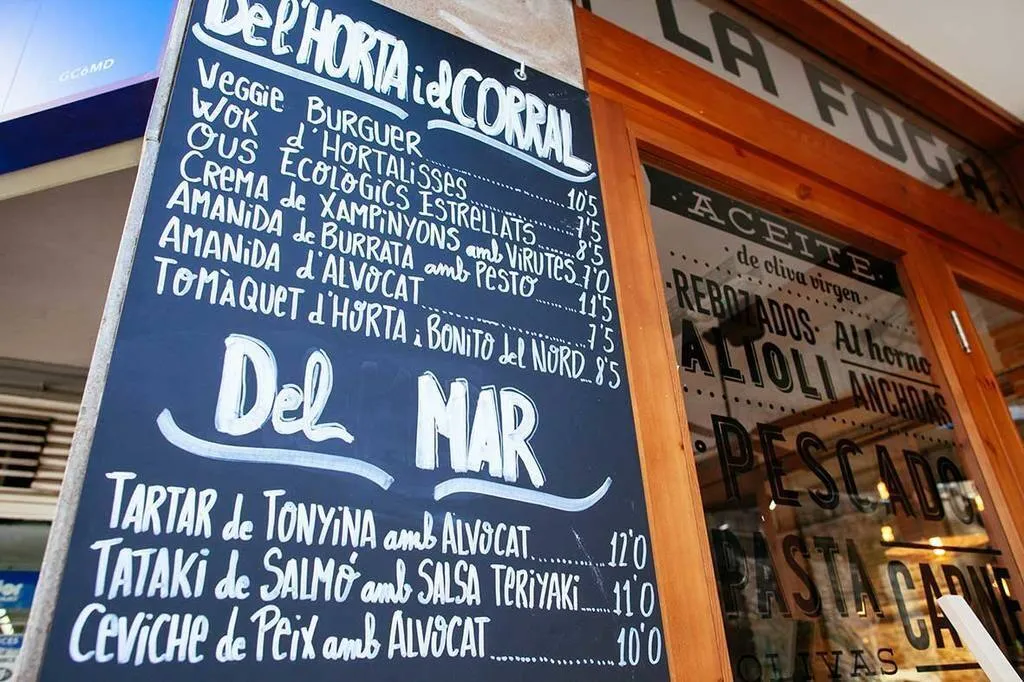 GCOMD
Del'HORTA i el CORRAL
VEGGIE BURGUER 10'5
WOK d'HORTALISSES 7'5
OUS ECOLÒGICS ESTRELLATS 8'5
CREMA de XAMPINYONS amb VIRUTES 7'0
AMANIDA de BURRATA amb PESTO 11'5
AMANIDA d'ALVOCAT 7'5
TOMÀQUET d'HORTA i BONITO del NORD 8'5
Del MAR
TARTAR de TONYINA amb ALVOCAT 12'0
TATAKI de SALMÓ amb SALSA TERIYAKI 11'0
CEVICHE de PEIX amb ALVOCAT 10'0
LA FOGA
ACEITE
de oliva virgen
REBOZADOS
ALIOLI
Al horno
ANCHOAS
PESCADO
PASTA
CARNE
OLIVAS